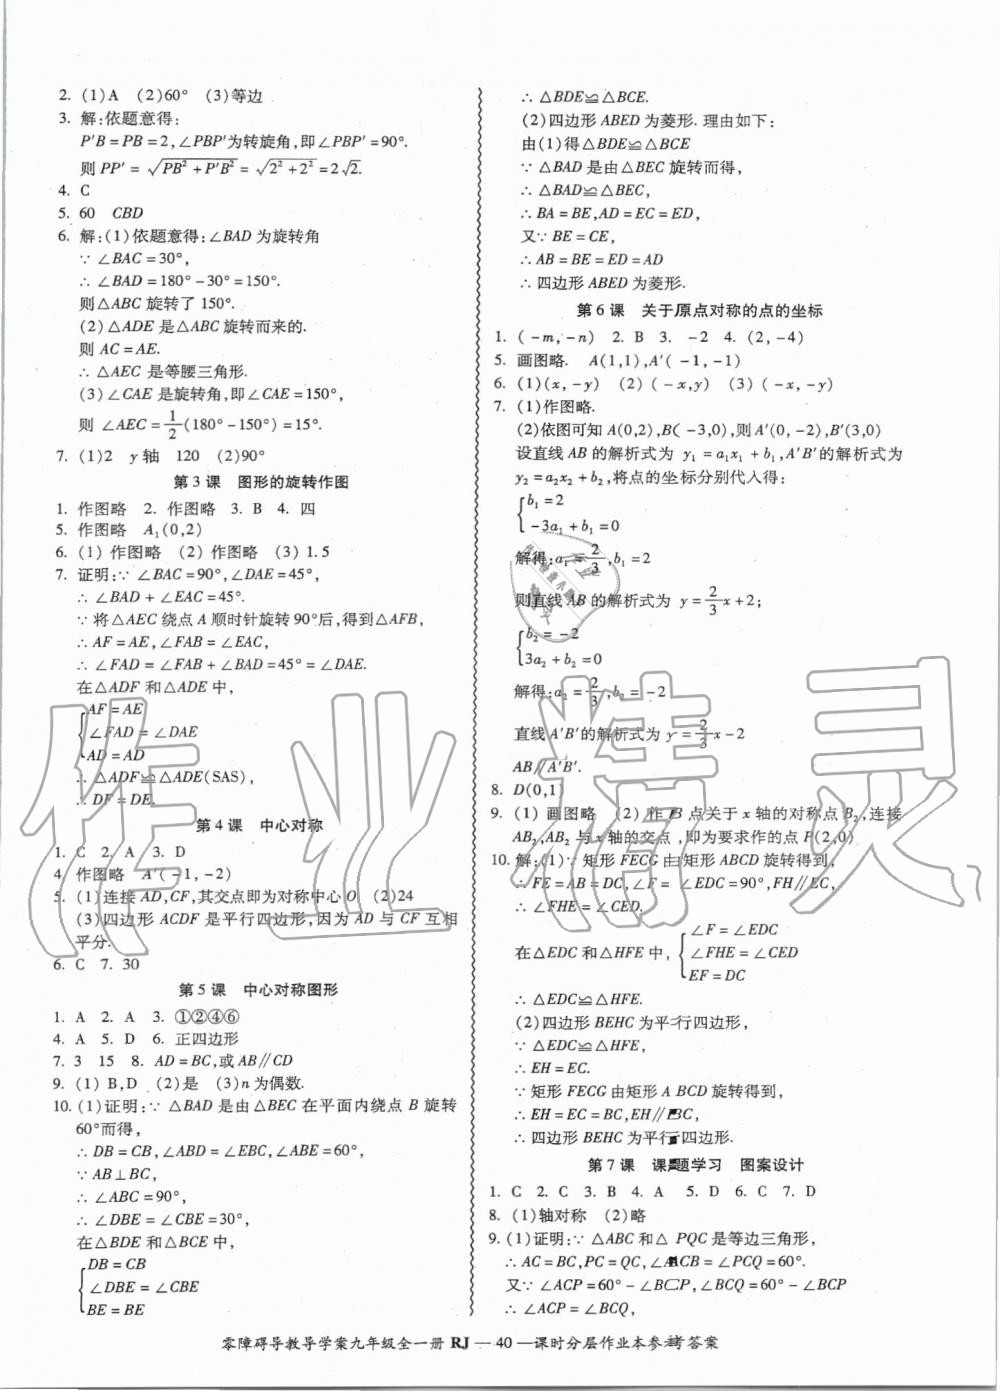 2. (1)A (2)60° (3)等边
3. 解:依题意得:
P′B=PB=2,∠PBP′为转旋角,即∠PBP′=90°.
则 PP′=√(PB²+P′B²)=√(2²+2²)=2√2.
4. C
5. 60 CBD
6. 解:(1)依题意得:∠BAD 为旋转角
∵ ∠BAC=30°,
∴ ∠BAD=180°-30°=150°.
则△ABC 旋转了 150°.
(2)△ADE 是△ABC 旋转而来的.
则 AC=AE.
∴ △AEC 是等腰三角形.
(3)∠CAE 是旋转角,即∠CAE=150°,
则 ∠AEC=1/2(180°-150°)=15°.
7. (1)2 y 轴 120 (2)90°
第 3 课 图形的旋转作图
1. 作图略 2. 作图略 3. B 4. 四
5. 作图略 A₁(0,2)
6. (1) 作图略 (2) 作图略 (3) 1.5
7. 证明:∵ ∠BAC=90°,∠DAE=45°,
∴ ∠BAD+∠EAC=45°.
∵ 将△AEC 绕点 A 顺时针旋转 90°后,得到△AFB,
∴ AF=AE,∠FAB=∠EAC,
∴ ∠FAD=∠FAB+∠BAD=45°=∠DAE.
在△ADF 和△ADE 中,
{AF=AE
∠FAD=∠DAE
AD=AD
∴ △ADF≌△ADE(SAS),
∴ DF=DE.
第 4 课 中心对称
1. C 2. A 3. D
4. 作图略 A′(-1,-2)
5. (1)连接 AD,CF,其交点即为对称中心 O (2)24
(3)四边形 ACDF 是平行四边形,因为 AD 与 CF 互相
平分.
6. C 7. 30
第 5 课 中心对称图形
1. A 2. A 3. ①②④⑥
4. A 5. D 6. 正四边形
7. 3 15 8. AD=BC,或 AB∥CD
9. (1) B,D (2)是 (3)n 为偶数.
10. (1)证明:∵ △BAD 是由△BEC 在平面内绕点 B 旋转
60°而得,
∴ DB=CB,∠ABD=∠EBC,∠ABE=60°,
∵ AB⊥BC,
∴ ∠ABC=90°,
∴ ∠DBE=∠CBE=30°,
在△BDE 和△BCE 中,
{DB=CB
∠DBE=∠CBE
BE=BE
∴ △BDE≌△BCE.
(2)四边形 ABED 为菱形. 理由如下:
由(1)得△BDE≌△BCE
∵ △BAD 是由△BEC 旋转而得,
∴ △BAD≌△BEC,
∴ BA=BE,AD=EC=ED,
又∵ BE=CE,
∴ AB=BE=ED=AD
∴ 四边形 ABED 为菱形.
第 6 课 关于原点对称的点的坐标
1. (-m,-n) 2. B 3. -2 4. (2,-4)
5. 画图略. A(1,1),A′(-1,-1)
6. (1)(x,-y) (2)(-x,y) (3)(-x,-y)
7. (1)作图略.
(2)依图可知 A(0,2),B(-3,0),则 A′(0,-2),B′(3,0)
设直线 AB 的解析式为 y₁=a₁x₁+b₁,A′B′的解析式为
y₂=a₂x₂+b₂,将点的坐标分别代入得:
{b₁=2
-3a₁+b₁=0
解得:a₁=2/3,b₁=2
则直线 AB 的解析式为 y=2/3x+2;
{b₂=-2
3a₂+b₂=0
解得:a₂=2/3,b₂=-2
直线 A′B′的解析式为 y=2/3x-2
AB∥A′B′.
8. D(0,1)
9. (1) 画图略 (2) 作 B 点关于 x 轴的对称点 B₂,连接
AB₂,AB₂ 与 x 轴的交点,即为要求作的点 P(2,0)
10. 解:(1)∵ 矩形 FECG 由矩形 ABCD 旋转得到,
∴ FE=AB=DC,∠F=∠EDC=90°,FH∥EC,
∴ ∠FHE=∠CED.
在△EDC 和△HFE 中,{∠F=∠EDC
∠FHE=∠CED
EF=DC
∴ △EDC≌△HFE.
(2)四边形 BEHC 为平行四边形,
∵ △EDC≌△HFE,
∴ EH=EC.
∵ 矩形 FECG 由矩形 ABCD 旋转得到,
∴ EH=EC=BC,EH∥BC,
∴ 四边形 BEHC 为平行四边形.
第 7 课 课题学习 图案设计
1. C 2. C 3. B 4. A 5. D 6. C 7. D
8. (1)轴对称 (2)略
9. (1)证明:∵ △ABC 和△PQC 是等边三角形,
∴ AC=BC,PC=QC,∠ACB=∠PCQ=60°.
又∵ ∠ACP=60°-∠BCP,∠BCQ=60°-∠BCP
∴ ∠ACP=∠BCQ,
零障碍导教导学案九年级全一册 RJ — 40 —课时分层作业本参考答案
作业精灵